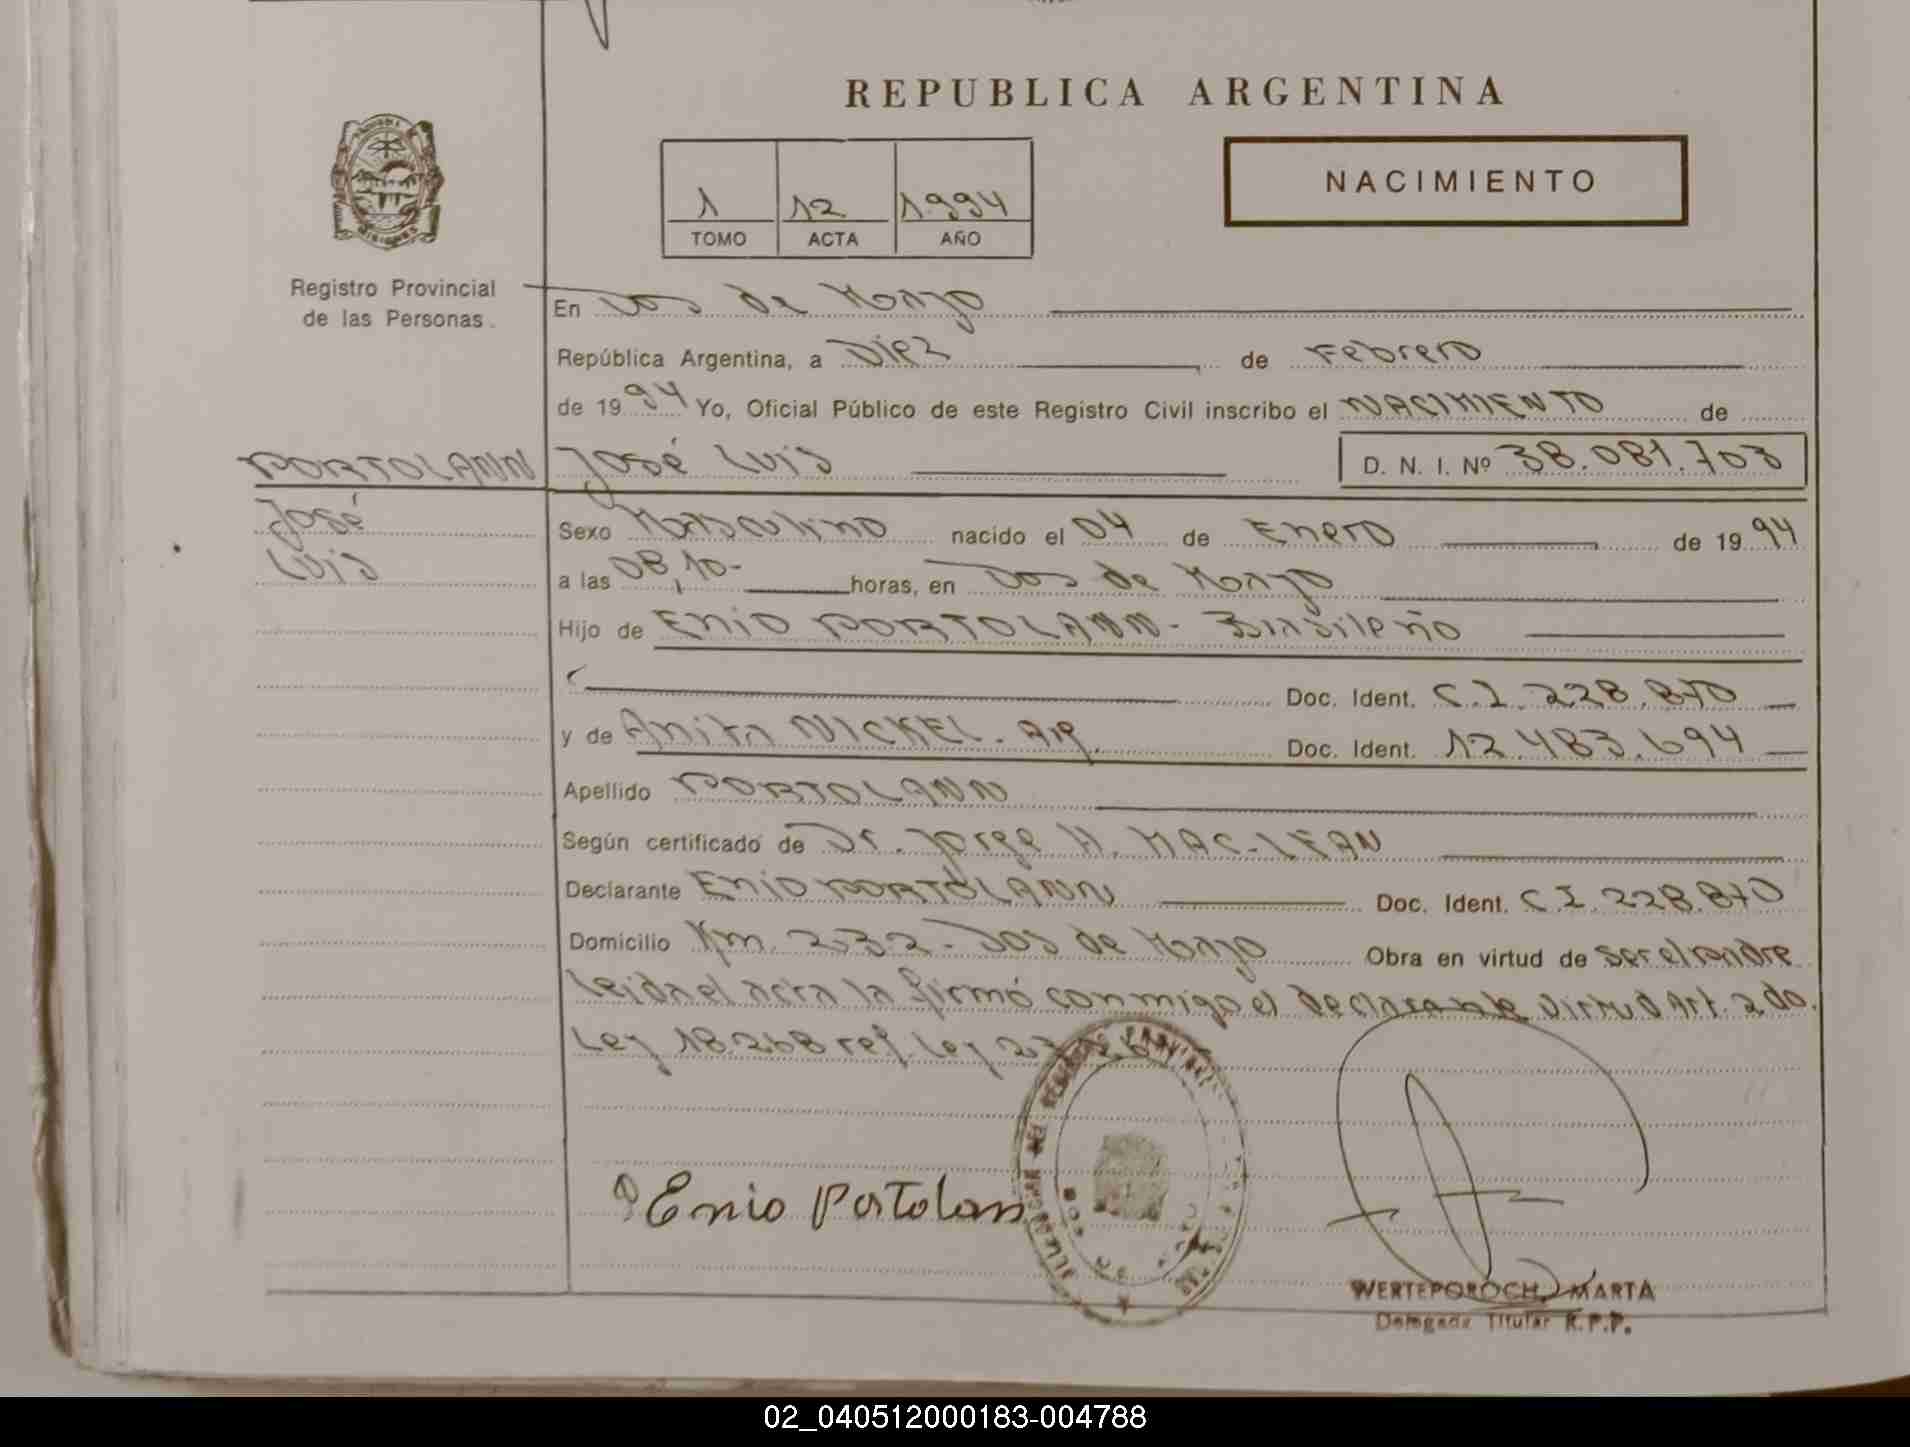 REPUBLICA ARGENTINA
NACIMIENTO
1 12 1.994
TOMO ACTA AÑO
MISIONES
Registro Provincial
de las Personas.
En Dos de Mayo
República Argentina, a Diez de Febrero
de 1994 Yo, Oficial Público de este Registro Civil inscribo el NACIMIENTO de
PORTOLANN José Luis D. N. I. Nº 38.081.703
José
Luis
Sexo Masculino nacido el 04 de Enero de 1994
a las 08,10- horas, en Dos de Mayo
Hijo de Enio PORTOLANN - Brasileño
Doc. Ident. C.I. 228.870
y de Anita NICKEL. Arg. Doc. Ident. 12.483.694
Apellido PORTOLANN
Según certificado de Dr. Jorge H. MAC-LEAN
Declarante Enio PORTOLANN Doc. Ident. C.I. 228.870
Domicilio Km. 232 - Dos de Mayo Obra en virtud de ser el padre
Leida el acta la firmó conmigo el declarante virtud Art. 2do.
Ley 18.248 ref. Ley
Enio Portolan
WERTEPOROCH, MARTA
Delegada Titular R.P.P.
02_040512000183-004788